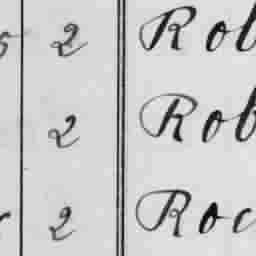 2 Rob
2 Rob
2 Roc